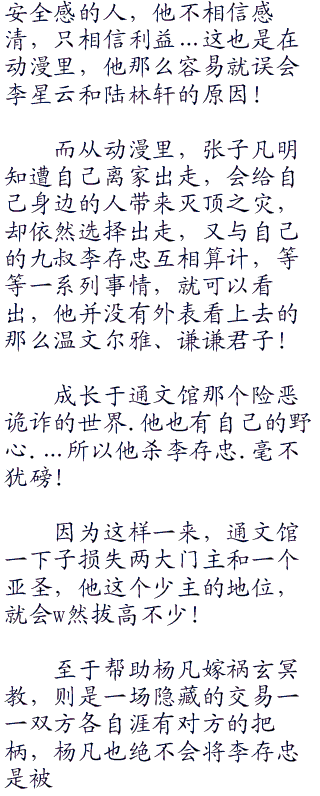 安全感的人，他不相信感
清，只相信利益…这也是在
动漫里，他那么容易就误会
李星云和陆林轩的原因！
而从动漫里，张子凡明
知遭自己离家出走，会给自
己身边的人带来灭顶之灾，
却依然选择出走，又与自己
的九叔李存忠互相算计，等
等一系列事情，就可以看
出，他并没有外表看上去的
那么温文尔雅、谦谦君子！
成长于通文馆那个险恶
诡诈的世界.他也有自己的野
心.…所以他杀李存忠.毫不
犹磅！
因为这样一来，通文馆
一下子损失两大门主和一个
亚圣，他这个少主的地位，
就会w然拔高不少！
至于帮助杨凡嫁祸玄冥
教，则是一场隐藏的交易一
一双方各自涯有对方的把
柄，杨凡也绝不会将李存忠
是被